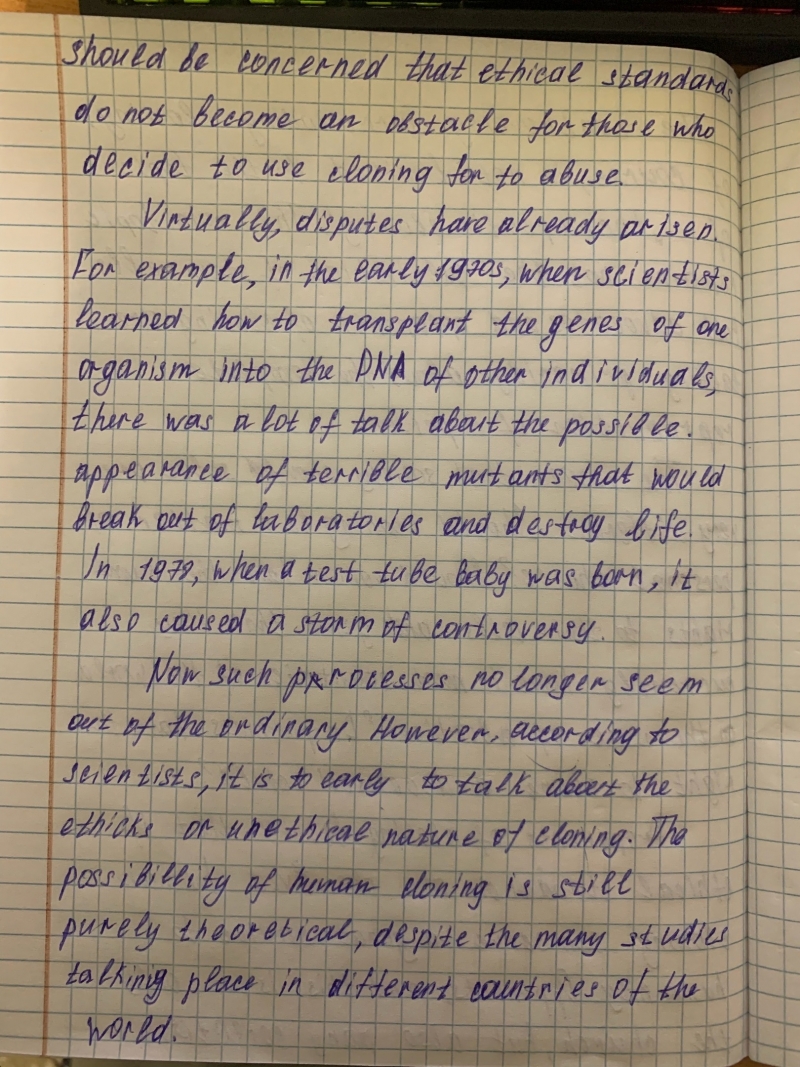 should be concerned that ethical standards
do not become an obstacle for those who
decide to use cloning for to abuse.
Virtually, disputes have already arisen.
For example, in the early 1970s, when scientists
learned how to transplant the genes of one
organism into the DNA of other individuals,
there was a lot of talk about the possible.
appearance of terrible mutants that would
break out of laboratories and destroy life.
In 1978, when a test tube baby was born, it
also caused a storm of controversy.
Now such processes no longer seem
out of the ordinary. However, according to
scientists, it is to early to talk about the
ethicks or unethical nature of cloning. The
possibillity of human cloning is still
purely theoretical, despite the many studies
talking place in different countries of the
world.